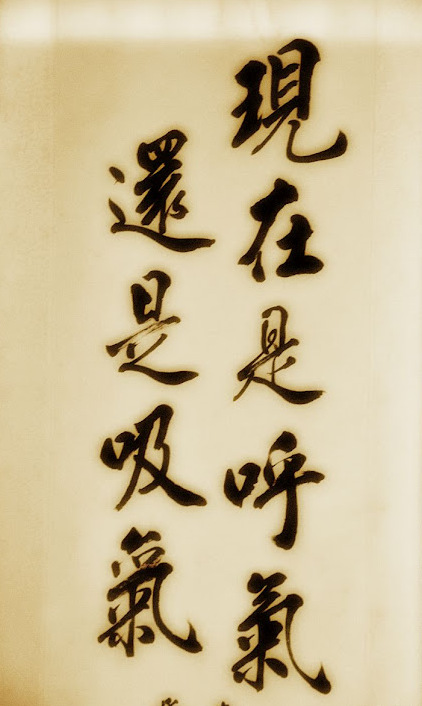 現在是呼氣
還是吸氣